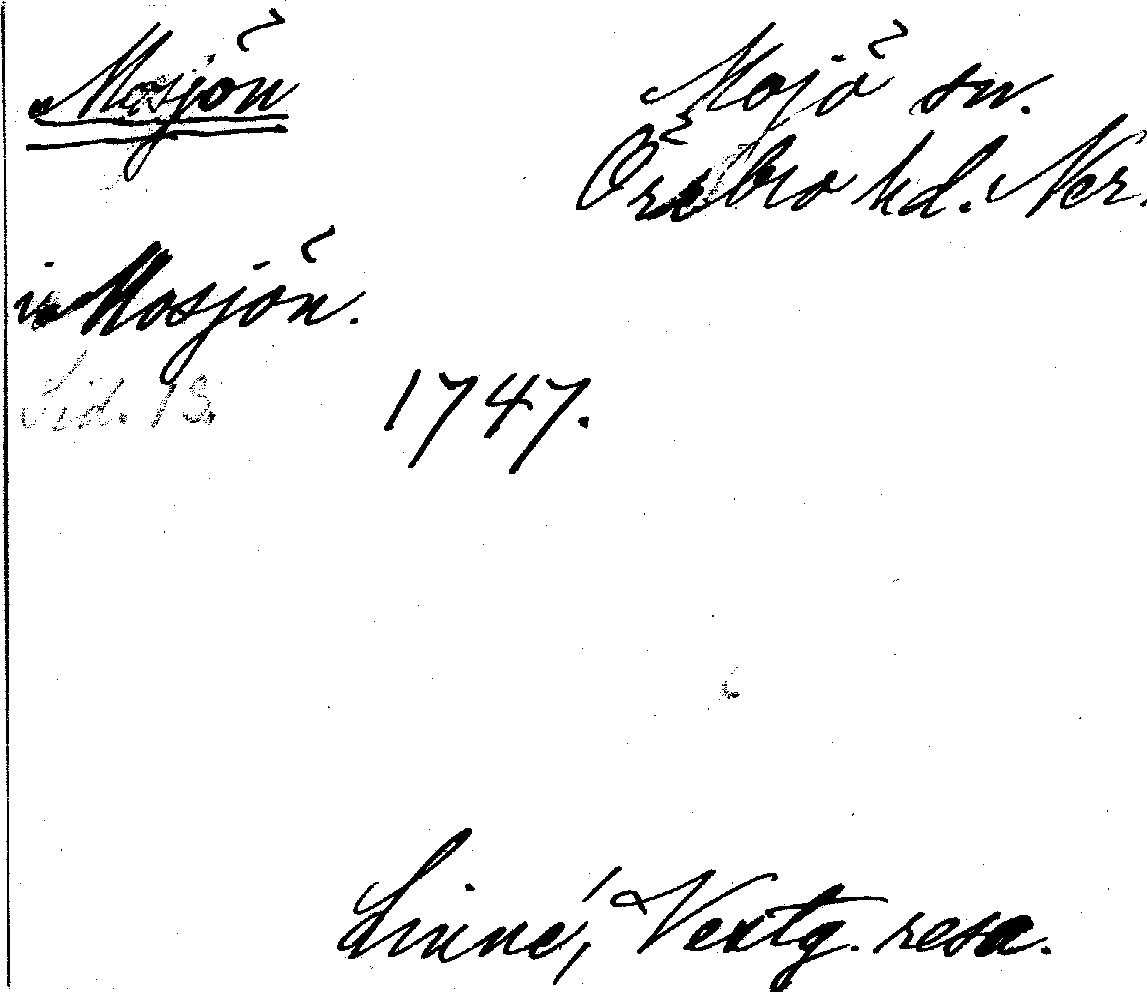 Mosjön
Mojö sn.
Örebro hd. Ner.
i Mosjön.
Sid. 13.
1747.
Linné, Vestg. resa.